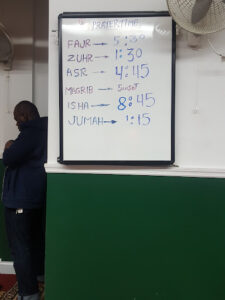 PRAYER TIME
FAJR → 5:30
ZUHR → 1:30
ASR → 4:45
MAGRIB → Sunset
ISHA → 8:45
JUMAH → 1:15